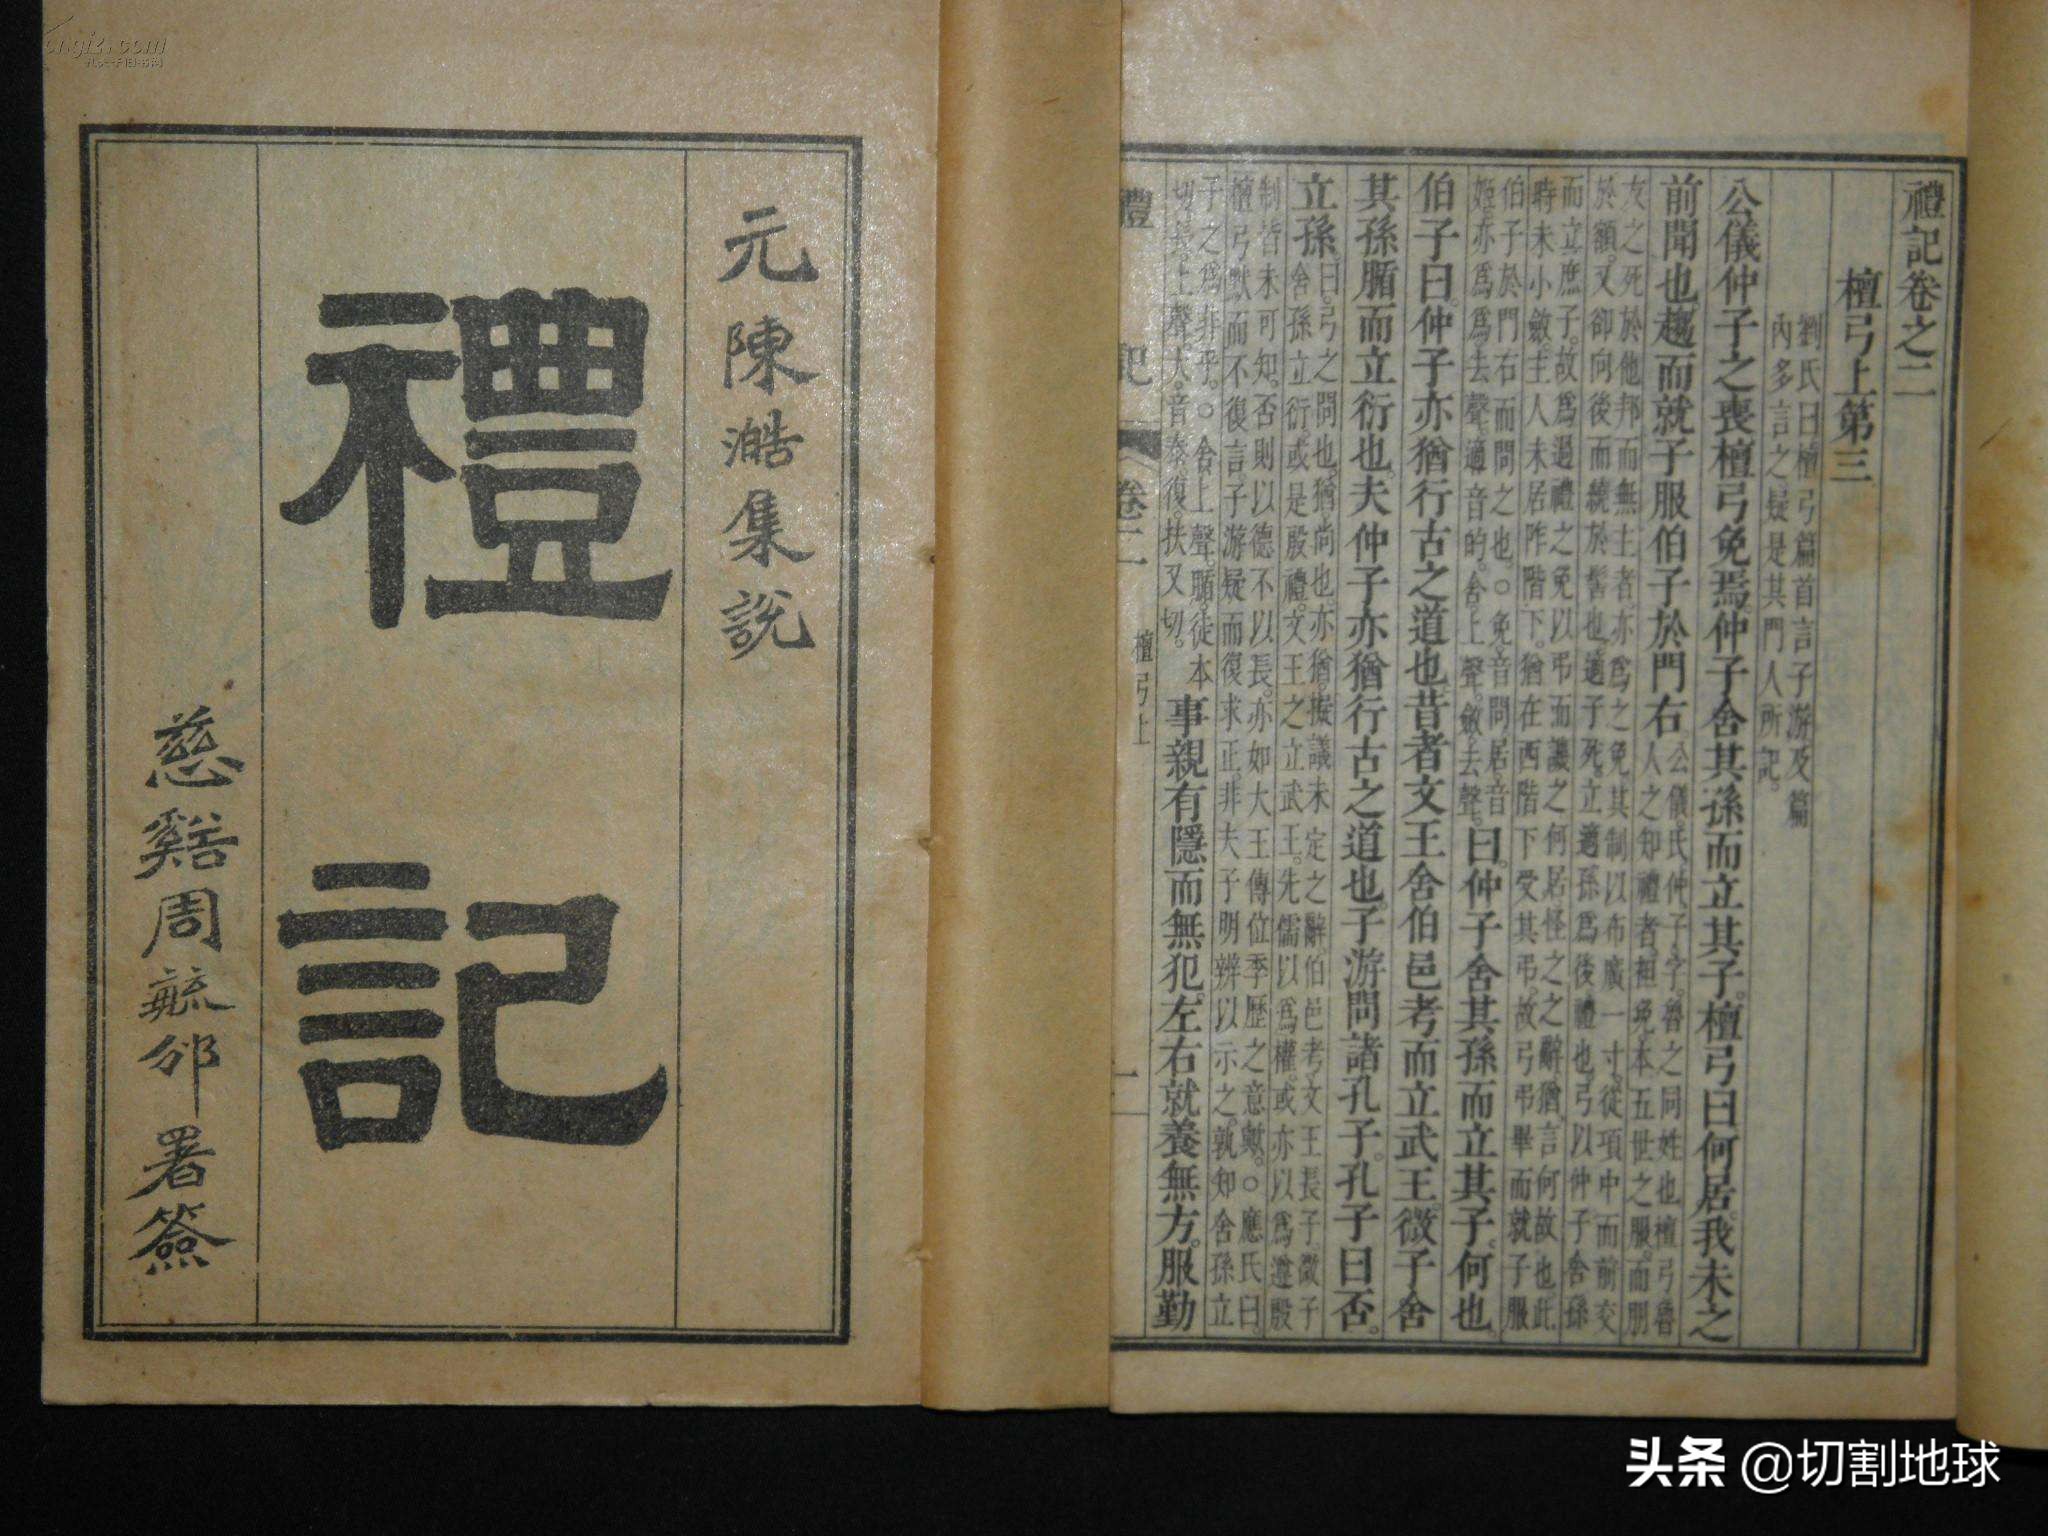 元陳澔集說
禮記
慈谿周毓邠署簽
禮記卷之二
檀弓上第三
劉氏曰檀弓篇首言子游及篇
內多言之疑是其門人所記。
公儀仲子之喪檀弓免焉。仲子舍其孫而立其子。檀弓曰何居。我未之
前聞也。趨而就子服伯子於門右
公儀氏仲子字。魯之同姓也檀弓魯
人之知禮者。袒免本五世之服。而朋
友之死於他邦而無主者。亦爲之免其制以布廣一寸。從項中而前交
於額。又卻向後而繞於髻也。適子死。立適孫爲後禮也。弓以仲子舍孫
而立庶子。故爲過禮之免以弔而譏之何居怪之之辭猶。言何故也此
時未小斂。主人未居阼階下。猶在西階下受其弔。故弓弔畢而就子服
伯子於門右而問之也。○免音問居音
姬。亦爲爲去聲。適音的。舍上聲。斂去聲。
曰。仲子舍其孫而立其子。何也。
伯子曰。仲子亦猶行古之道也昔者文王舍伯邑考而立武王。微子舍
其孫腯而立衍也。夫仲子亦猶行古之道也。子游問諸孔子。孔子曰否。
立孫。
曰。弓之問也。猶尚也亦猶。擬議未定之辭伯邑考文王長子。微子
舍孫立衍。或是殷禮。文王之立武王。先儒以爲權。或亦以爲遵殷
制皆未可知。否則以德不以長。亦如大王傳位季歷之意歟。○應氏曰。
檀弓默而不復言。子游疑而復求正。非夫子明辨以示之。孰知舍孫立
子之爲非乎。○舍上聲。腯徒本
切。長上聲。大。音泰復。扶又切。
事親有隱而無犯。左右就養無方。服勤
禮記 卷二 檀弓上 一
头条 @切割地球